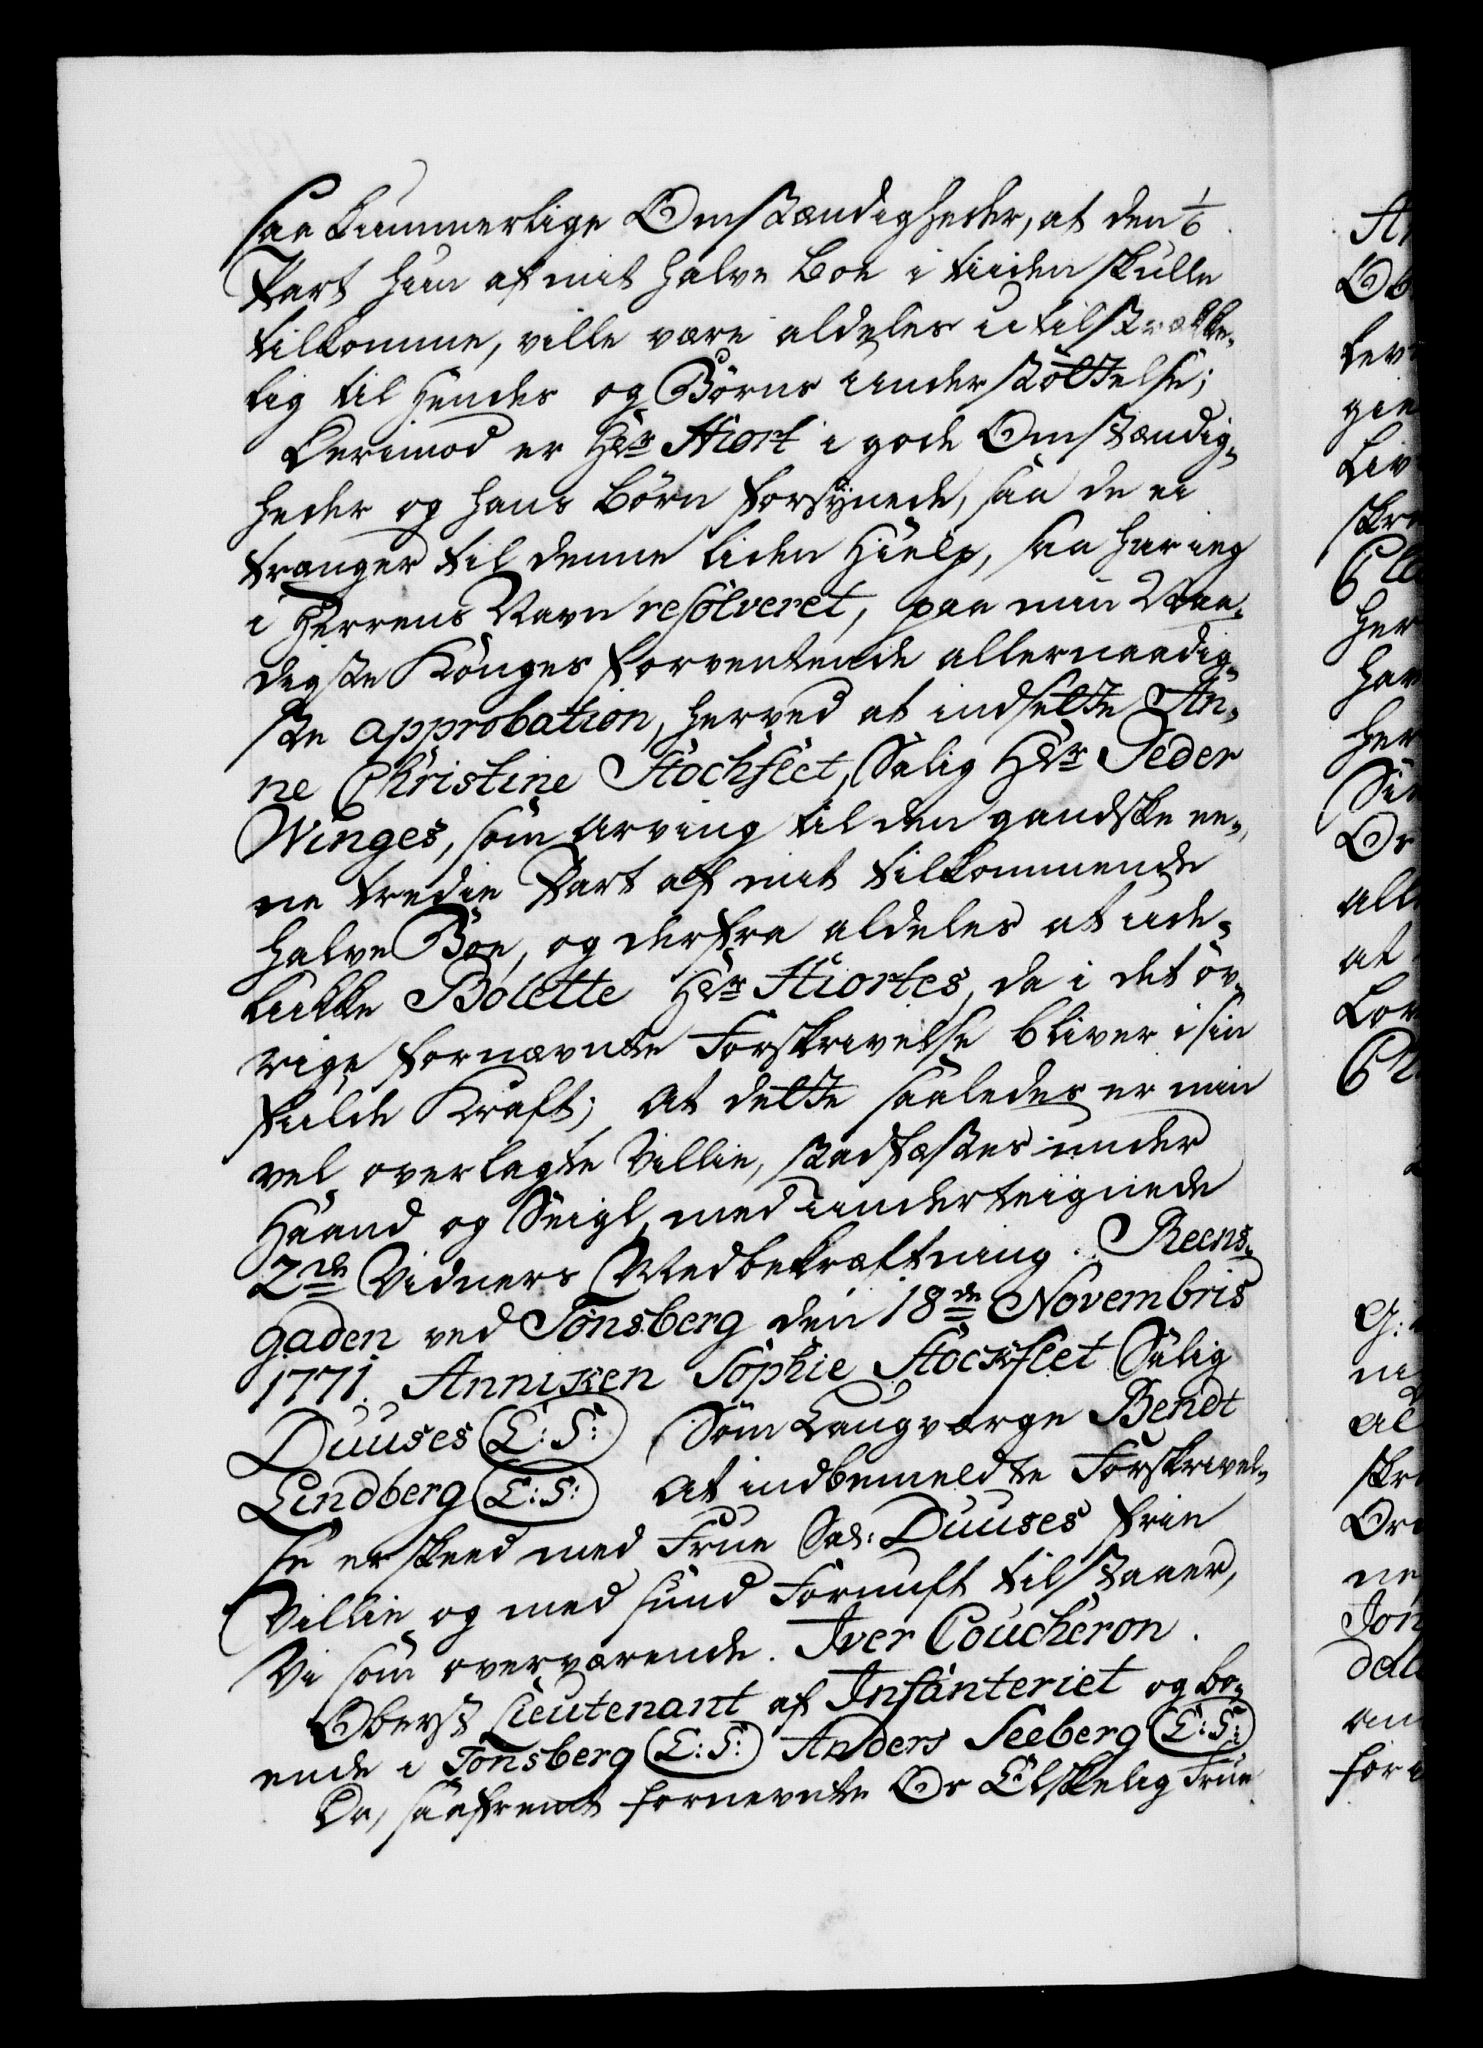 saa kummerlige Omstændigheder, at den 1/6
Part hun af mit halve Boe i tiiden skulle
tilkomme, ville være aldeles utilstrække-
lig til Hendes og Börns Understöttelse;
Derimod er Hr Hiort i gode Omstændig-
heder og hans Börn forsÿnede, saa de ei
trænger til denne liden Hielp, saa har ieg
i Herrens Navn resolveret, paa min Naa-
digste Konges forventende allernaadig-
ste approbation, herved at indsætte An-
ne Christine Stochfleet, Salig Hr Peder
Winges, som Arving til den gandske ee-
ne tredie Part af mit tilkommende
halve Boe, og derfra aldeles at ude-
lukke Bolette Hr Hiortes, da i det öv-
rige fornævnte Forskrivelse bliver i sin
fulde Kraft; At dette saaledes er min
vel overlagte Villie, stadfæstes under
Haand og Seigl med underteignede
2de Vidners Medbekræftning. Reens-
gaden ved Tönsberg den 18de Novembris
1771. Anniken Sophie Stockfleet Salig
Duuses (L:S:) Som Laugværge Bendt
Lindberg (L:S:) At indbemeldte Forskrivel-
se er skeed med Frue Sal: Duuses frie
Villie og med sund Fornuft tilstaaer,
Vi som overværende. Iver Coucheron.
Oberst Lieutenant af Infanteriet og bo-
ende i Tönsberg (L:S:) Anders Seeberg (L:S:)
Da, saafremt fornevnte Os Elskelig Frue